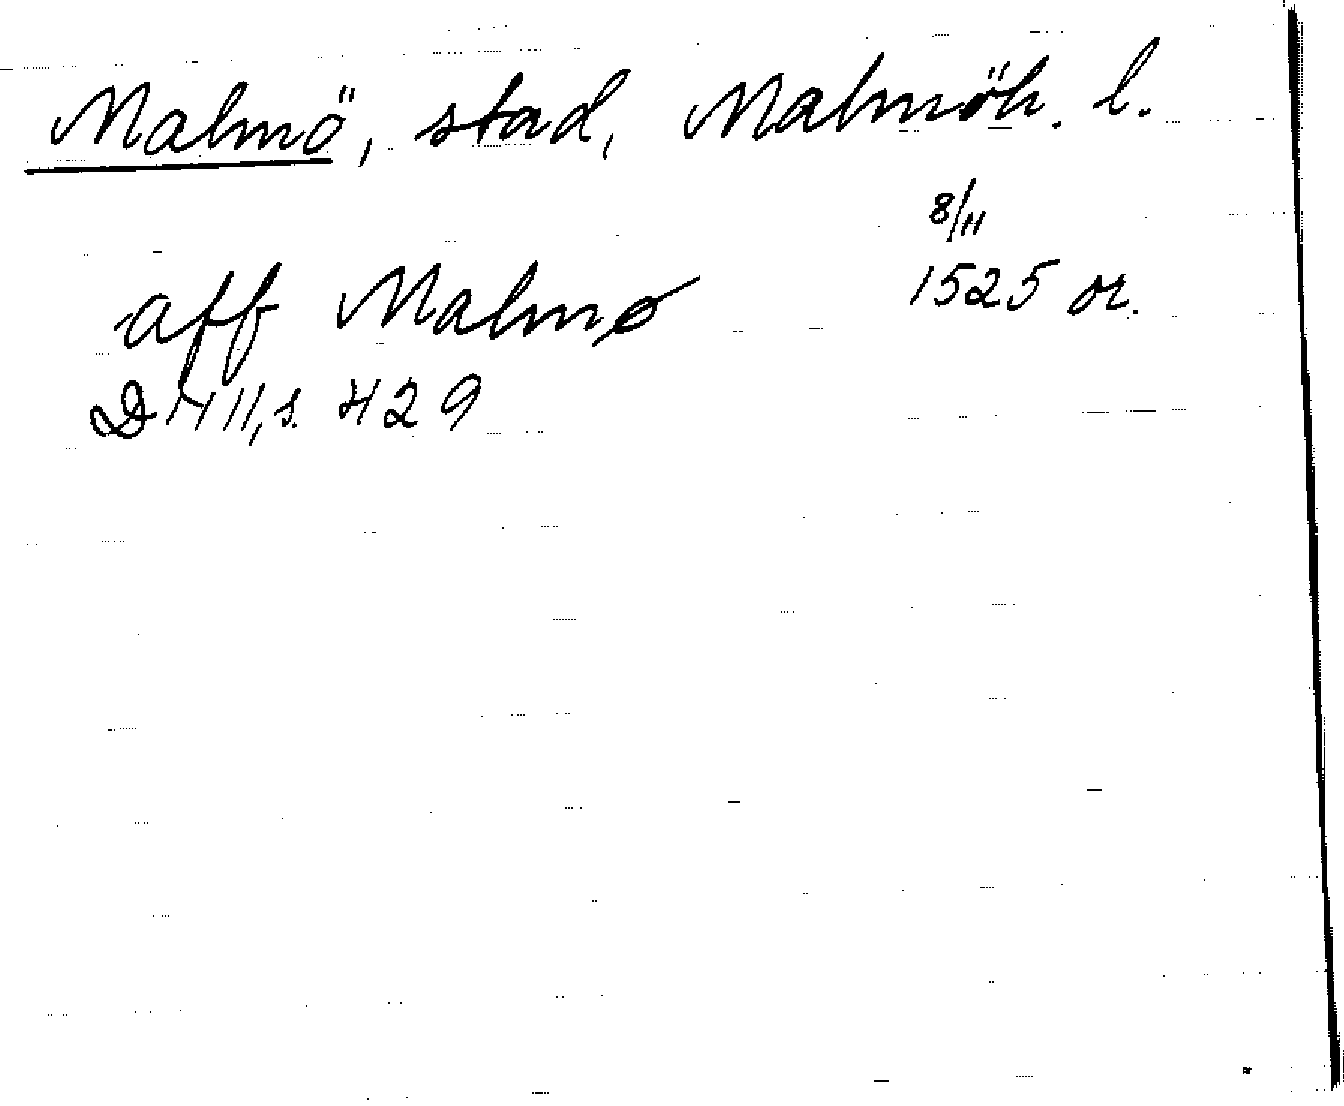 Malmö, stad, Malmöh. l.
8/11
aff Malmø 1525 or.
DMII, s. 429